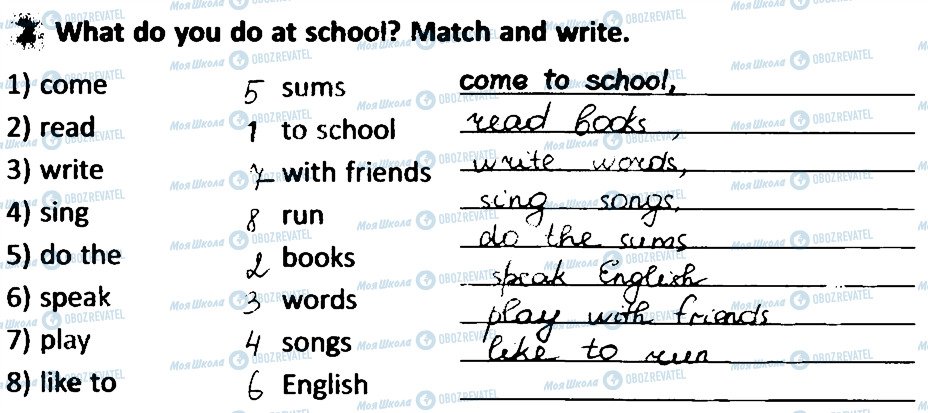 2 What do you do at school? Match and write.
1) come 5 sums come to school,
2) read 1 to school read books,
3) write 7 with friends write words,
4) sing 8 run sing songs,
5) do the 2 books do the sums
6) speak 3 words speak English
7) play 4 songs play with friends
8) like to 6 English like to run
Моя Школа OBOZREVATEL